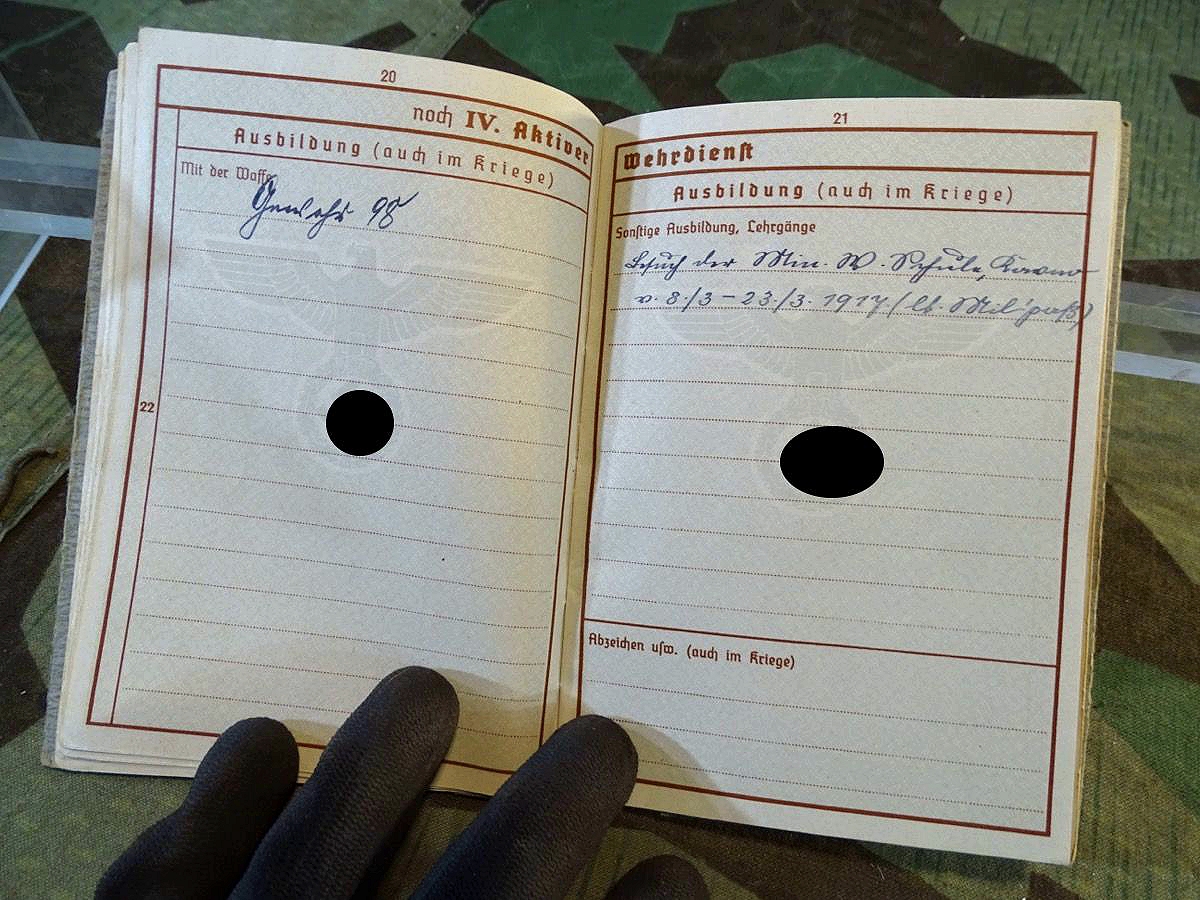 20
noch IV. Aktiver
Ausbildung (auch im Kriege)
Mit der Waffe
Gewehr 98
22
21
Wehrdienst
Ausbildung (auch im Kriege)
Sonstige Ausbildung, Lehrgänge
Besuch der Min. W. Schule, Kowno
v. 8./3 – 23./3. 1917 (lt. Mil'paß)
Abzeichen usw. (auch im Kriege)